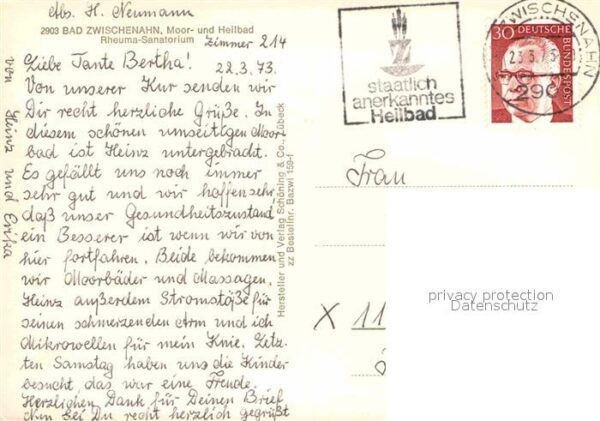 Abs. H. Neumann
2903 BAD ZWISCHENAHN, Moor- und Heilbad
Rheuma-Sanatorium Zimmer 214
Liebe Tante Bertha!
22.3.73.
Von unserer Kur senden wir
Dir recht herzliche Grüße. In
diesem schönen umseitigen Moor
bad ist Heinz untergebracht.
Es gefällt uns noch immer
sehr gut und wir hoffen sehr
daß unser Gesundheitszustand
ein Besserer ist wenn wir von
hier fortfahren. Beide bekommen
wir Moorbäder und Massagen,
Heinz außerdem Stromstöße für
seinen schmerzenden Arm und ich
Mikrowellen für mein Knie. Letz-
ten Samstag haben uns die Kinder
besucht das war eine Freude.
Herzlichen Dank für Deinen Brief
Nun sei Du recht herzlich gegrüßt
von Heinz und Erika
Hersteller und Verlag Schöning & Co., Lübeck
zz Bestellnr. Bazwi 159-f
staatlich
anerkanntes
Heilbad
ZWISCHENAHN
290
30 DEUTSCHE
BUNDESPOST
Frau
X 11
privacy protection
Datenschutz